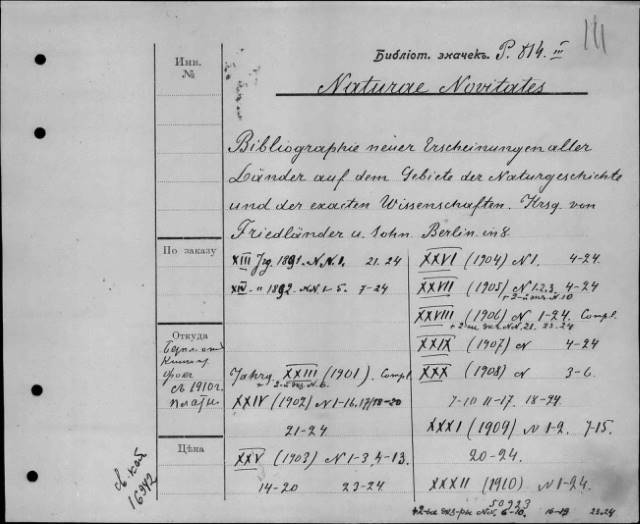 III
Библіот. значекъ P. 814. III
Инв.
№
Naturae Novitates
Bibliographie neuer Erscheinungen aller
Länder auf dem Gebiete der Naturgeschichte
und der exacten Wissenschaften. Hrsg. von
Friedländer u. Sohn. Berlin. in 8.
По заказу
XIII Jrg. 1891. N.N. 1. 21. 24
XIV. " 1892. N.N. 1-5. 7-24
Откуда
съ 1910 г.
Jahrg. XXIII (1901). Compl.
XXIV (1902) N 1-16. 17/18-20
21-24
Цѣна
XXV (1903) N 1-3, 4-13.
14-20 23-24
XXVI (1904) N 1. 4-24.
XXVII (1905) N 1.2.3. 4-24
XXVIII (1906) N 1-24. Compl.
XXIX (1907) N 4-24
XXX (1908) N 3-6.
7-10 11-17. 18-24
XXXI (1909) N 1-2. 7-15.
20-24.
XXXII (1910) N 1-24.
50923
6-10. 16-19 23-24
16942